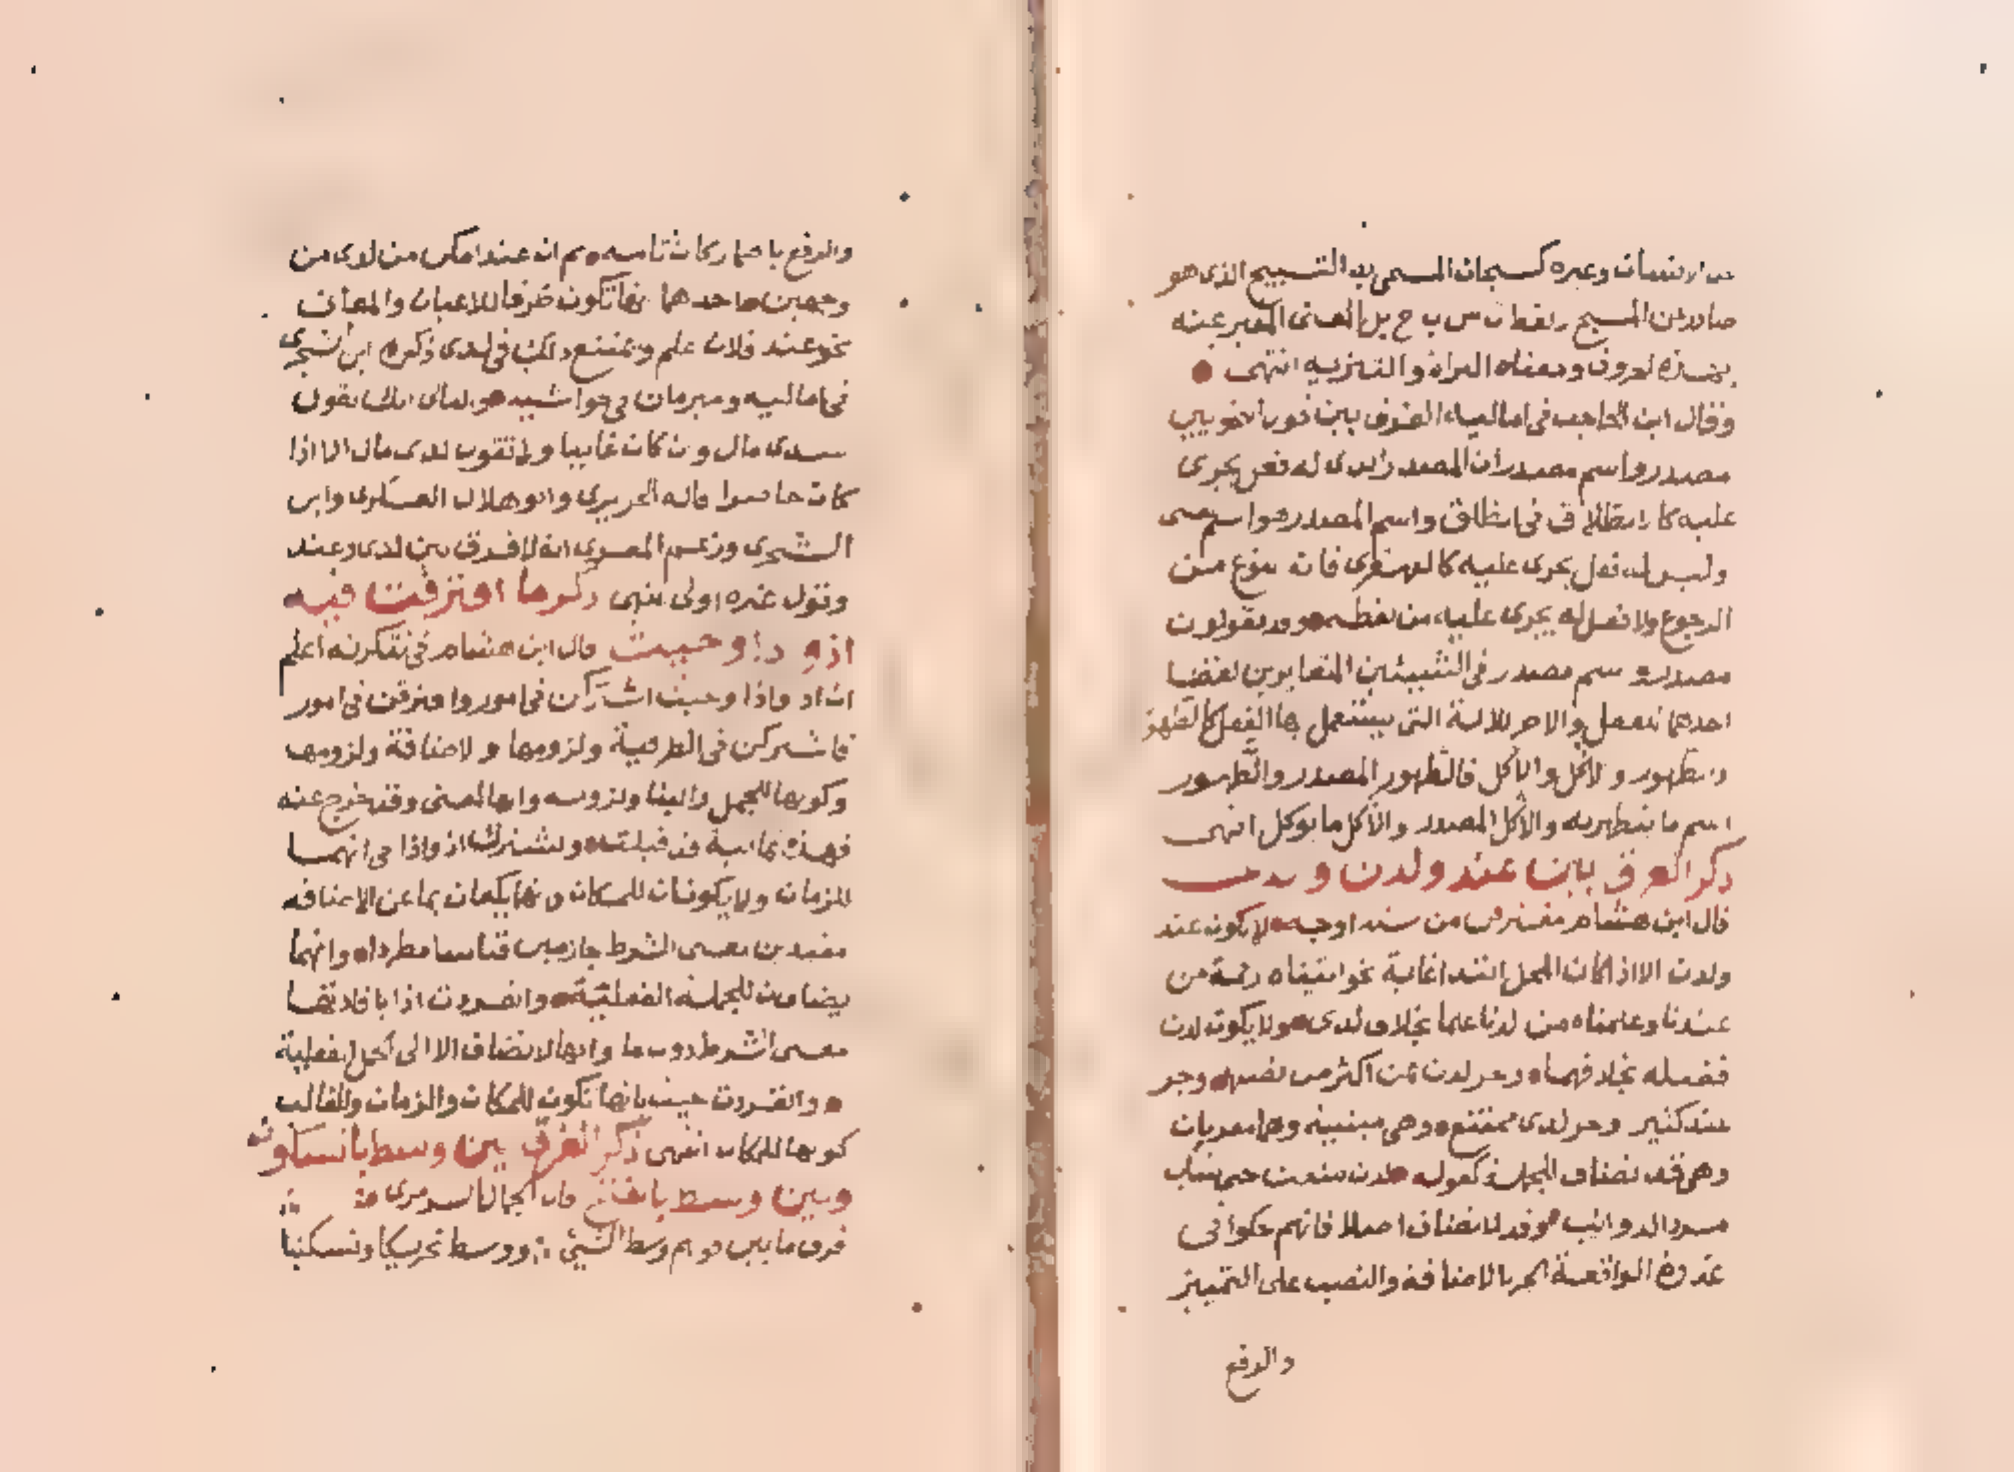 من الانسان وغيره كسبحان المسمى به التسبيح الذي هو
صادر من المسبح لفظ ت س ب ح بل المعنى المعبر عنه
بهذه الحروف ومعناه البراة والتنزيه انتهى
وقال ابن الحاجب في اماليه الفرق بين قول النحويين
مصدر واسم مصدر ان المصدر الذي له فعل يجرى
عليه كالانطلاق في انطلق واسم المصدر هو اسم معنى
وليس له فعل يجرى عليه كالقهقرى فانه نوع من
الرجوع ولا فعل له يجرى عليه من لفظه وقد يقولون
مصدر واسم مصدر في الشيئين المتغايرين لفظا
احدهما للفعل والاخر للالة التي يستعمل بها الفعل كالطهور
والطهور والاكل والاكل فالطهور المصدر والطهور
اسم ما يتطهر به والاكل المصدر والاكل ما يوكل انتهى
ذكر الفرق بين عند ولدن ولدى
قال ابن هشام يفترقن من ستة اوجه لا يكون عند
ولدن الا اذا كان المحل ابتداء غاية نحو اتيناه رحمة من
عندنا وعلمناه من لدنا علما بخلاف لدى ولا يكون لدن
فضلة بخلافهما وجر لدن بمن اكثر من نصبها وجر
عند كثير وجر لدى ممتنع وهي مبنية وهما معربان
وهي قد تضاف للجملة كقوله لدن شب حتى شاب
سود الذوائب وقد لا تضاف اصلا فانهم حكوا في
غدوة الواقعة الجر بالاضافة والنصب على التمييز
والرفع
والرفع باضمار كان تامة ثم ان عند امكن من لدى من
وجهين احدهما انها تكون ظرفا للاعيان والمعاني
نحو عند فلان علم ويمتنع ذلك في لدى ذكره ابن الشجري
في اماليه ومبرمان في حواشيه والثاني انك تقول
عندي مال وان كان غايبا ولا تقول لدى مال الا اذا
كان حاضرا قاله الحريري وابو هلال العسكري وابن
الشجري وزعم المعري انه لا فرق بين لدى وعند
وقول غيره اولى انتهى ذكر ما افترقت فيه
اذ واذا وحيث قال ابن هشام في تذكرته اعلم
ان اذ واذا وحيث اشتركن في امور وافترقن في امور
فاشتركن في الظرفية ولزومها والاضافة ولزومها
وكونها للجمل والبنا ولزومه وانها لمعنى وقد خرج عنه
فهذه ثمانية قد قبلت ويشترك اذ واذا في انهما
للزمان ولا يكونان للمكان وانهما يكفان بما عن الاضافة
مفيدين معنى الشرط جازمين قياسا مطردا وانهما
يضافان للجملة الفعلية وانفردت اذا بافادتها
معنى الشرط دون ما وانها لا تضاف الا الى الجمل الفعلية
وانفردت حيث بانها تكون للمكان والزمان والغالب
كونها للمكان انتهى ذكر الفرق بين وسط بالسكون
وبين وسط بالفتح قال الجمال السرمري
فرق ما بين قولهم وسط الشيء ووسط تحريكا وتسكينا